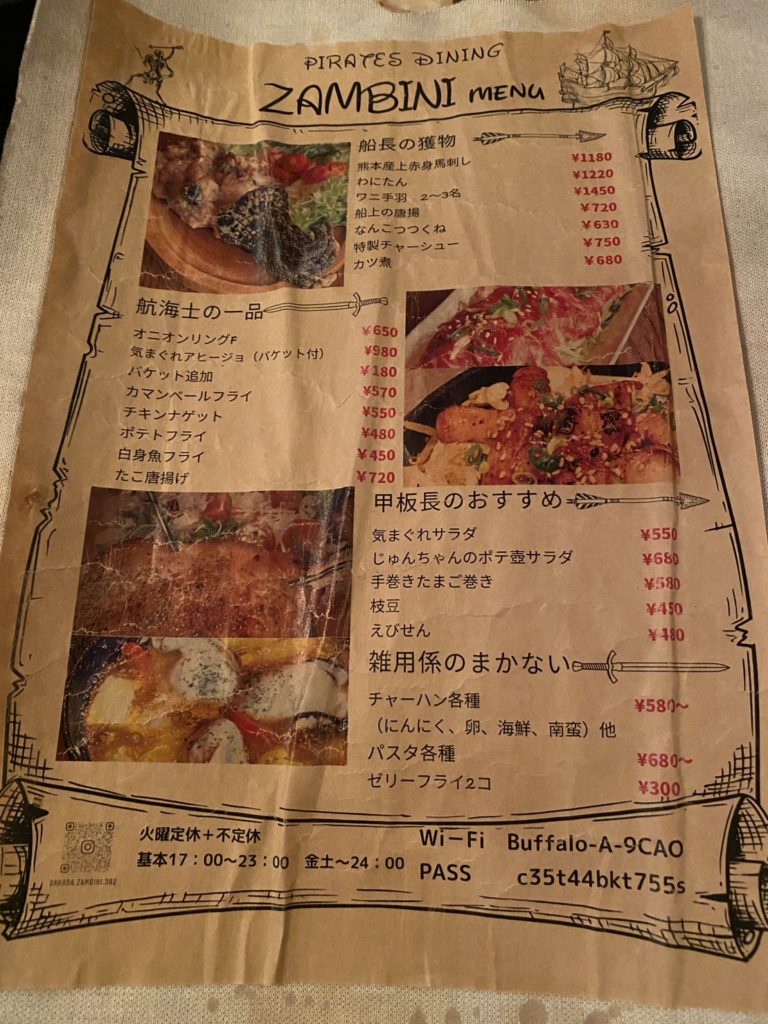 PIRATES DINING
ZAMBINI MENU
船長の獲物
熊本産上赤身馬刺し ¥1180
わにたん ¥1220
ワニ手羽 2〜3名 ¥1450
船上の唐揚 ¥720
なんこつつくね ¥630
特製チャーシュー ¥750
カツ煮 ¥680
航海士の一品
オニオンリングF ¥650
気まぐれアヒージョ（バケット付） ¥980
バケット追加 ¥180
カマンベールフライ ¥570
チキンナゲット ¥550
ポテトフライ ¥480
白身魚フライ ¥450
たこ唐揚げ ¥720
甲板長のおすすめ
気まぐれサラダ ¥550
じゅんちゃんのポテ壺サラダ ¥680
手巻きたまご巻き ¥580
枝豆 ¥450
えびせん ¥480
雑用係のまかない
チャーハン各種 ¥580〜
（にんにく、卵、海鮮、南蛮）他
パスタ各種 ¥680〜
ゼリーフライ2コ ¥300
火曜定休＋不定休
基本17：00〜23：00 金土〜24：00
Wi－Fi Buffalo-A-9CAO
PASS c35t44bkt755s